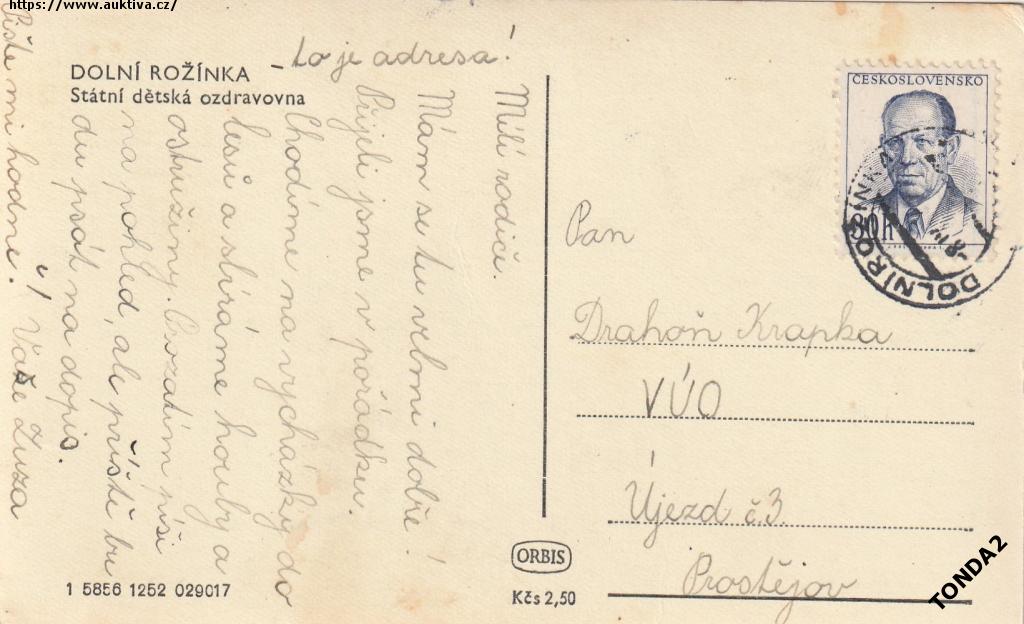 https://www.auktiva.cz/
DOLNÍ ROŽÍNKA
Státní dětská ozdravovna
- to je adresa!
Milí rodiče.
Mám se tu velmi dobře!
Přijeli jsme v pořádku.
Chodíme na vycházky do
lesů a sbíráme houby a
ostružiny. Prozatím píši
na pohled, ale příště bu
du psát na dopis.
Vaše Zuza
Pište mi hodně.
ČESKOSLOVENSKO
80 h
DOLNÍ ROŽÍNKA
Pan
Drahoň Krapka
VÚO
Újezd č.3.
Prostějov
1 5856 1252 029017
ORBIS
Kčs 2,50
TONDA2